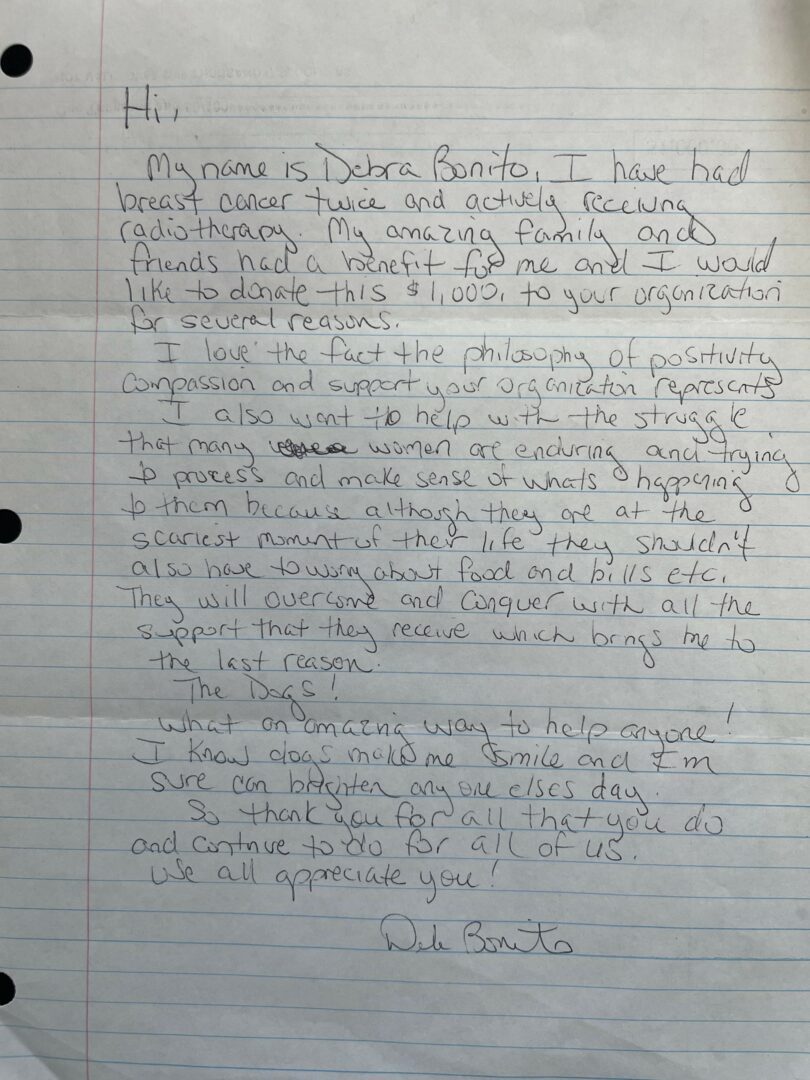 Hi,
My name is Debra Bonito, I have had
breast cancer twice and actively receiving
radiotherapy. My amazing family and
friends had a benefit for me and I would
like to donate this $1,000. to your organization
for several reasons.
I love the fact the philosophy of positivity
compassion and support your organization represents
I also want to help with the struggle
that many women are enduring and trying
to process and make sense of whats happening
to them because although they are at the
scariest moment of their life they shouldn't
also have to worry about food and bills etc.
They will overcome and conquer with all the
support that they receive which brings me to
the last reason.
The Dogs!
What an amazing way to help anyone!
I know dogs make me smile and I'm
sure can brighten any one elses day.
So thank you for all that you do
and continue to do for all of us.
We all appreciate you!
Deb Bonito